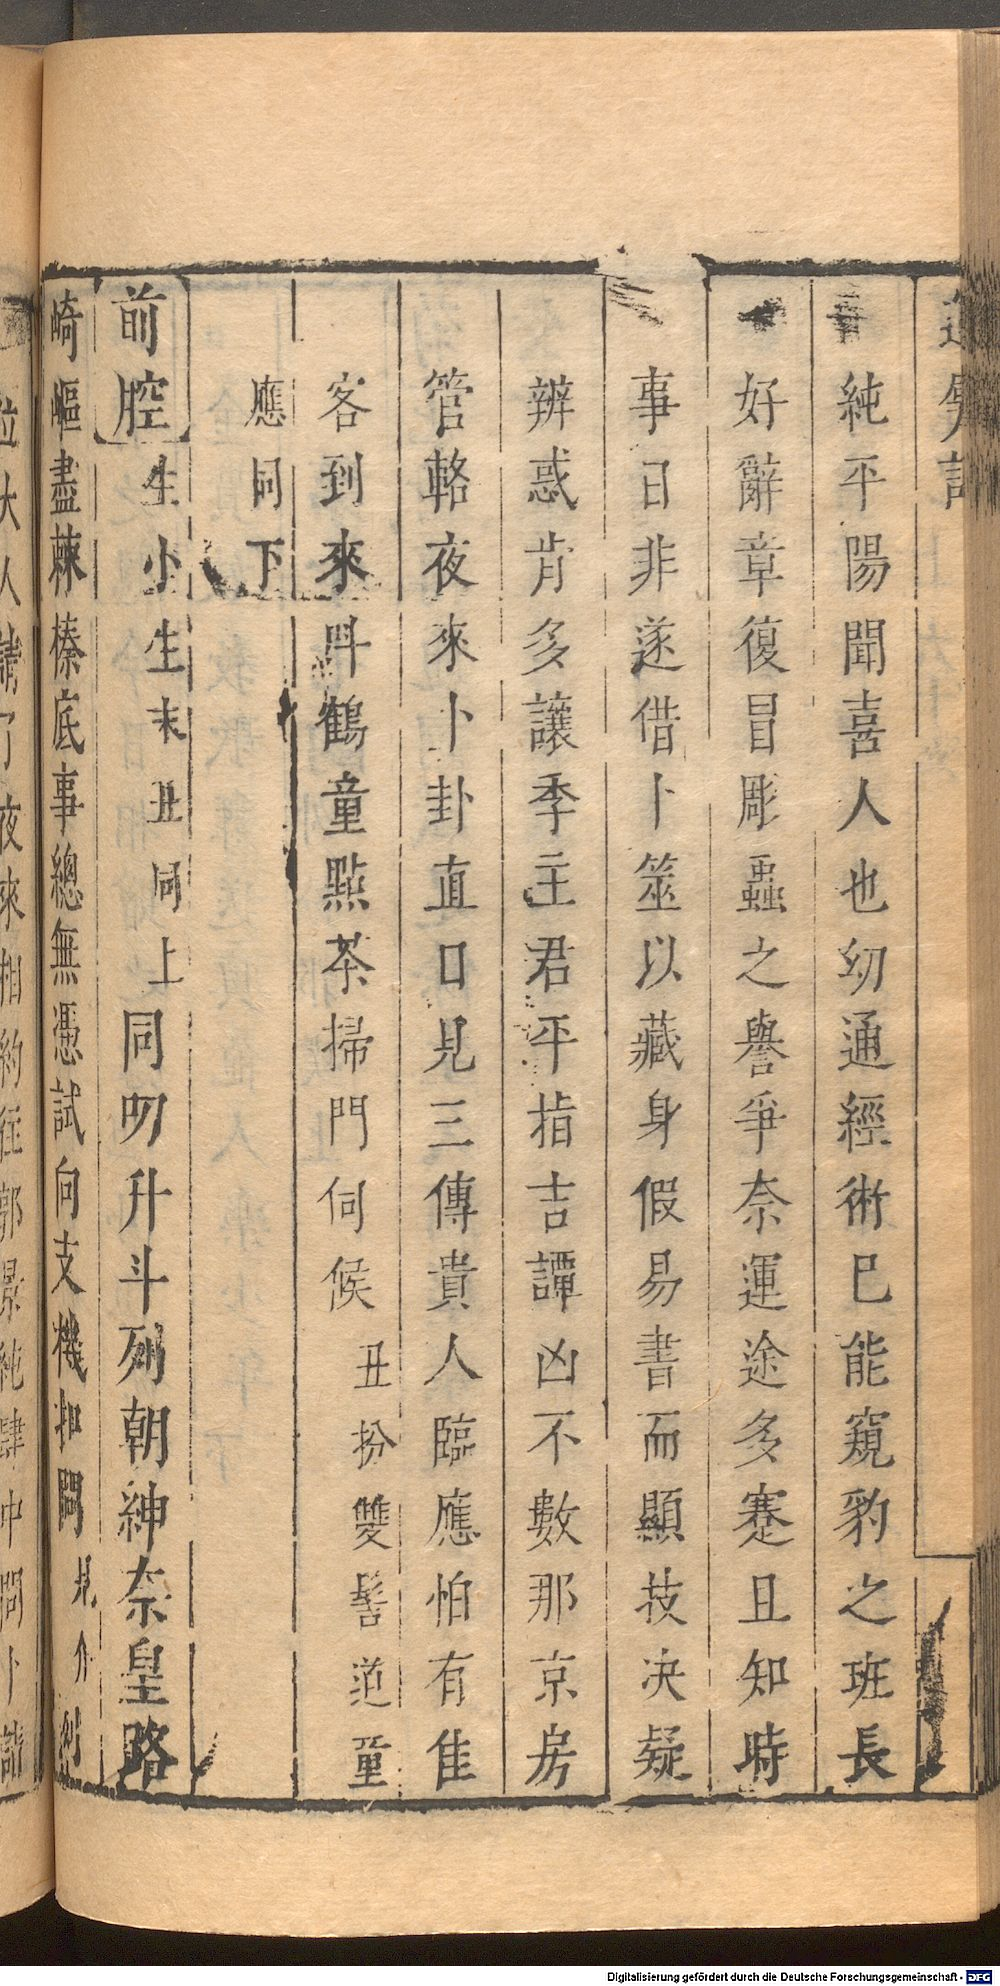 純平陽聞喜人也幼通經術巳能窺豹之班長
好辭章復冒彫蟲之譽爭奈運途多蹇且知時
事日非遂借卜筮以藏身假易書而顯技决疑
辨惑肯多讓季主君平指吉譚凶不數那京房
管輅夜來卜卦直日見三傳貴人臨應怕有佳
客到來呌鶴童點茶掃門伺候丑扮雙髻道童
應同下
前腔生小生末丑同上同呌升斗列朝紳奈皇路
崎嶇盡棘榛底事總無憑試向支機扣問
位大人請了夜來相約往郭景純肆中問卜
Digitalisierung gefördert durch die Deutsche Forschungsgemeinschaft - DFG